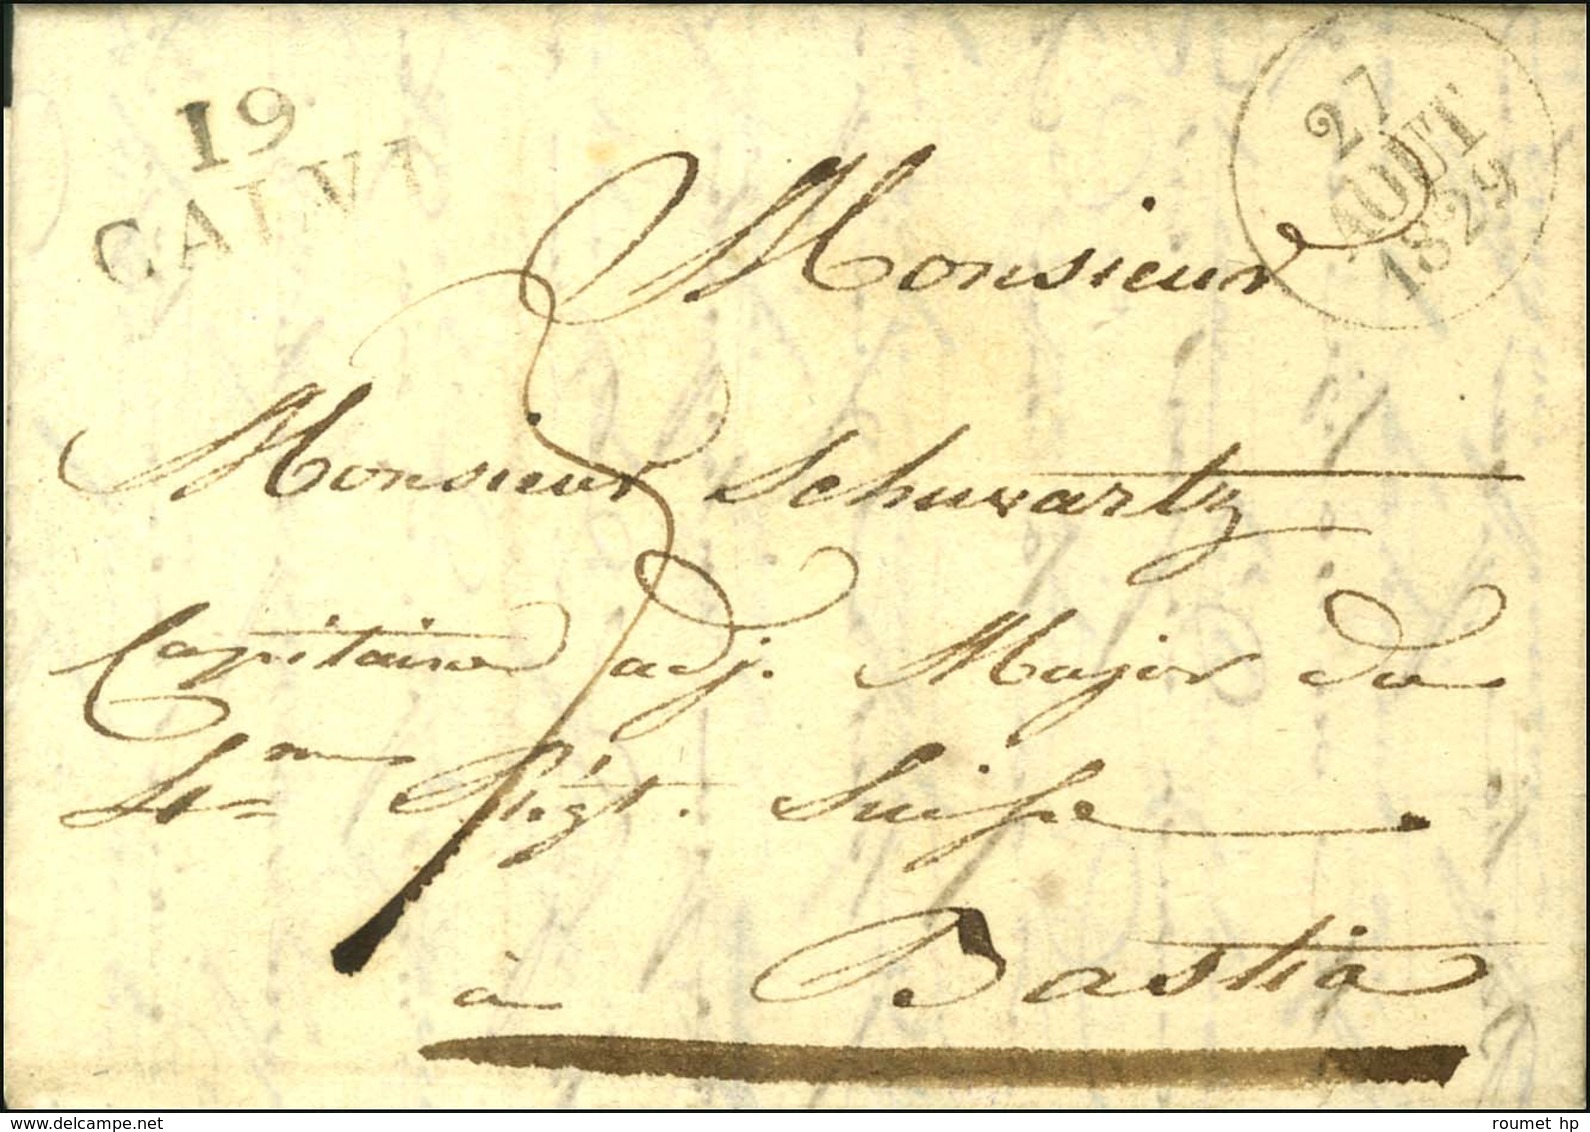 19
CALVI
27
AOUT
1829
Monsieur
Monsieur Schwartz
Capitaine adj. Major du
4me Régt. Suisse
à Bastia
roumet hp